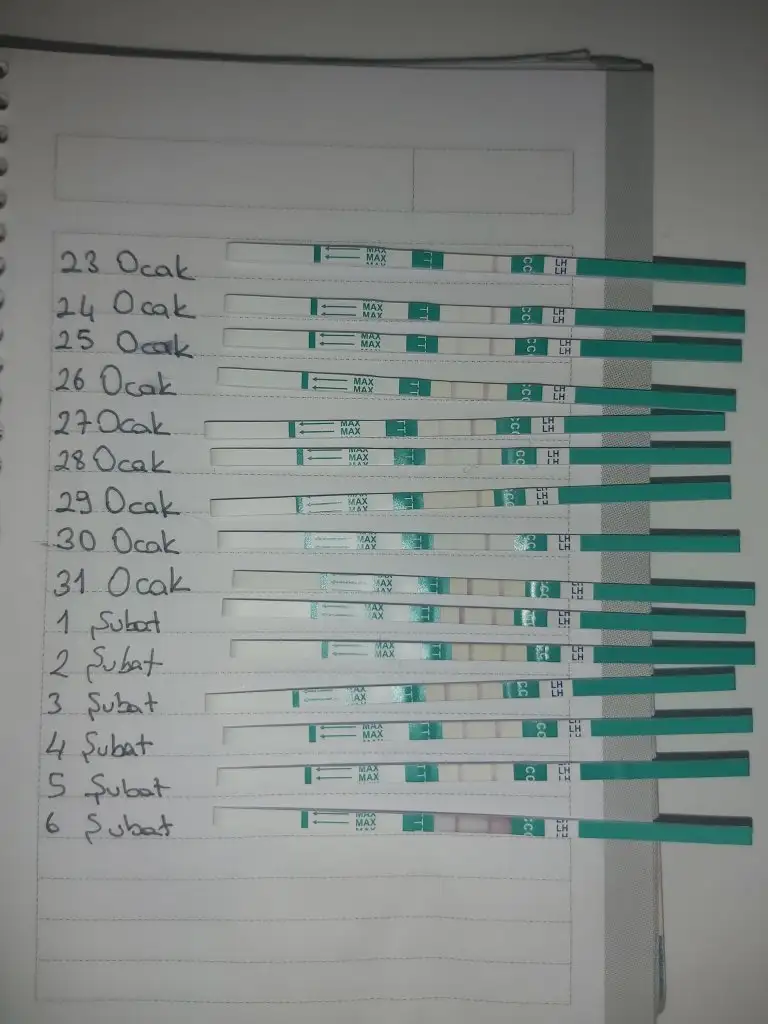 23 Ocak MAX MAX MAX TT CC LH LH
24 Ocak MAX MAX TT CC LH LH
25 Ocak MAX MAX TT CC LH LH
26 Ocak MAX MAX TT CC LH LH
27 Ocak MAX MAX TT CC LH LH
28 Ocak MAX MAX CC LH LH
29 Ocak MAX MAX TT CC LH LH
30 Ocak MAX MAX TT CC LH LH
31 Ocak MAX MAX TT CC LH LH
1 Şubat MAX MAX TT LH LH
2 Şubat MAX MAX TT CC LH LH
3 Şubat MAX TT CC LH LH
4 Şubat MAX MAX TT CC LH LH
5 Şubat MAX MAX TT CC LH LH
6 Şubat MAX MAX MAX TT CC LH LH